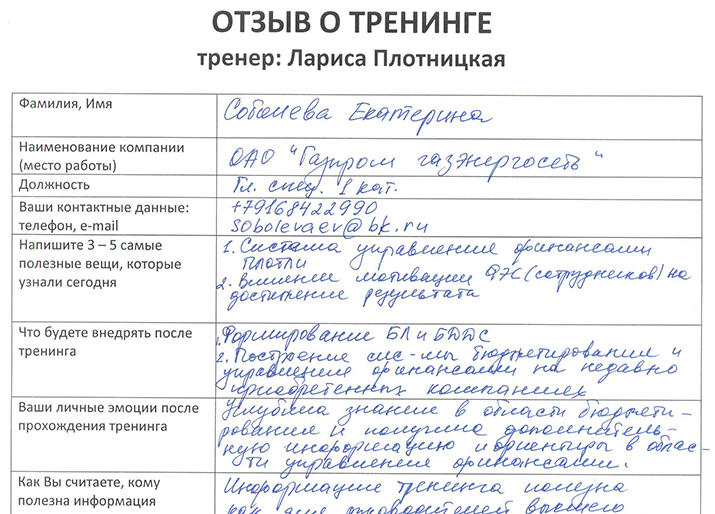 ОТЗЫВ О ТРЕНИНГЕ
тренер: Лариса Плотницкая
Фамилия, Имя
Соболева Екатерина
Наименование компании
(место работы)
ОАО "Газпром газэнергосеть"
Должность
Гл. спец. 1 кат.
Ваши контактные данные:
телефон, e-mail
+79168422990
sobolevaev@bk.ru
Напишите 3 – 5 самые
полезные вещи, которые
узнали сегодня
1. Система управления финансами
2. Влияние мотивации ФЭС (сотрудников) на
достижение результата
Что будете внедрять после
тренинга
1. Формирование БЛ и БДДС
2. Построение сис-мы бюджетирования и
управления финансами на недавно
приобретенных компаниях
Ваши личные эмоции после
прохождения тренинга
Углубила знание в области бюджети-
рования и получила дополнитель-
ную информацию и ориентиры в облас-
ти управления финансами.
Как Вы считаете, кому
полезна информация
Информация тренинга полезна
как для руководителей высшего